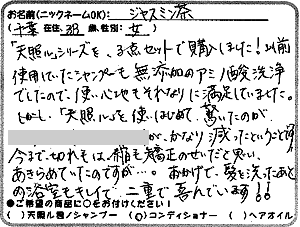 お名前(ニックネームOK): ジャスミン茶
(千葉 在住、38 歳、性別: 女 )
「天照ル」シリーズを、3点セットで購入しました！以前
使用していたシャンプーも無添加のアミノ酸洗浄
でしたので、使い心地もそれなりに満足していました。
しかし「天照ル」を使いはじめて、驚いたのが
が、かなり減ったということです
今まで切れ毛は、縮毛矯正のせいだと思い、
あきらめていたのですが…。おかげで、髪を洗ったあと
の浴室もキレイで、二重で喜んでいます!!
●ご希望の商品に○をお付けください!
( )天照ル君ノシャンプー (○)コンディショナー ( )ヘアオイル